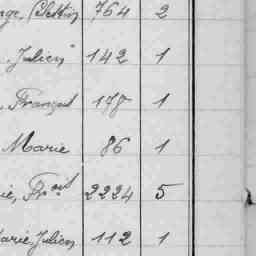 nge, Célestin 764 2
, Julien 142 1
, François 178 1
Marie 86 1
ie, Frois 2224 5
Marie, Julien 112 1